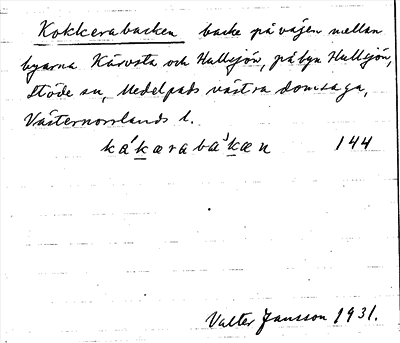 Kokkerabacken backe på vägen mellan
byarna Kärvsta och Hullsjön, på byn Hullsjön,
Stöde sn, Medelpads västra domsaga,
Västernorrlands l.
kákæraba³kæn 144
Valter Jansson 1931.